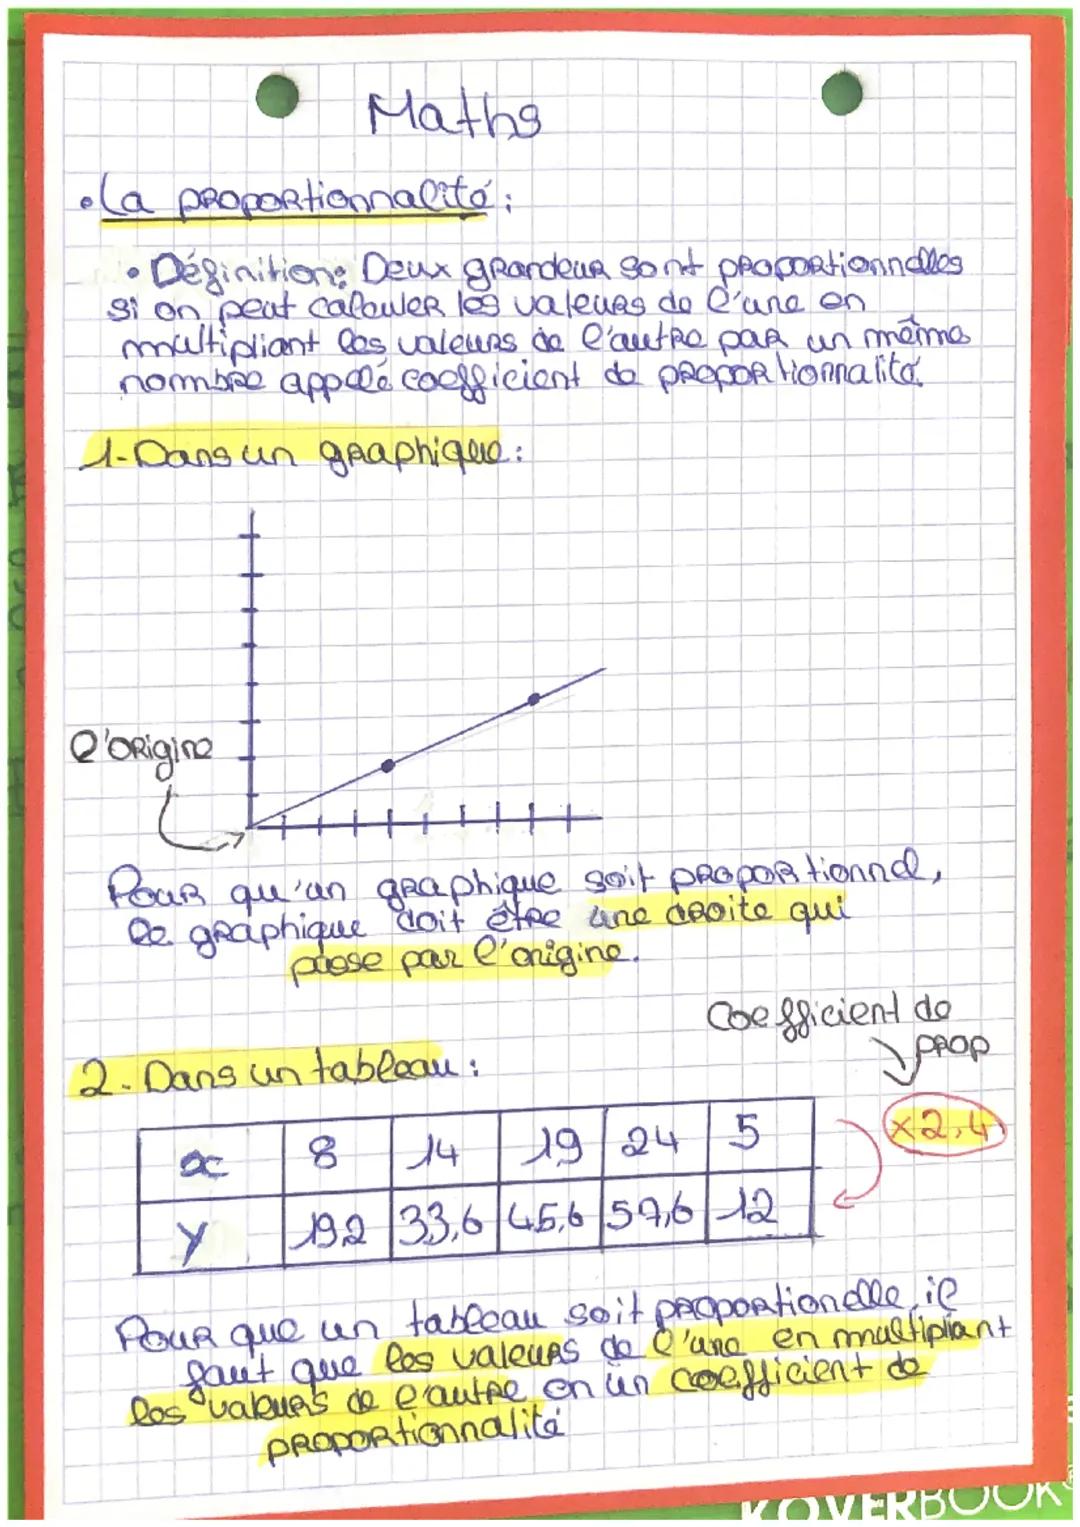 Maths
• La proportionnalité :
• Définition : Deux grandeur sont proportionnelles
si on peut calculer les valeurs de l'une en
multipliant les valeurs de l'autre par un même
nombre appelé coefficient de proportionnalité.
1-Dans un graphique :
l'origine
Pour qu'un graphique soit proportionnel,
le graphique doit être une droite qui
passe par l'origine.
Coefficient de
prop
2. Dans un tableau :
x 8 14 19 24 5
×2,4
y 19,2 33,6 45,6 57,6 12
Pour que un tableau soit proportionelle, il
faut que les valeurs de l'une en multipiant
les valeurs de l'autre en un coefficient de
proportionnalité
KOVERBOOK